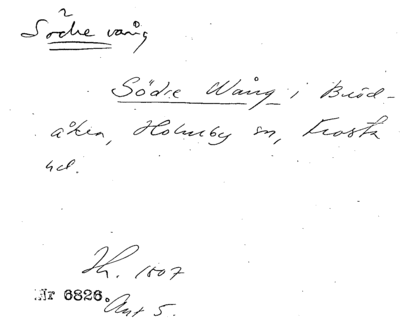 2
Södre vång
Södre Wång i Bröd-
åkra, Holmby sn, Frosta
hd.
Th. 1807
Nr 6826. Akt 5.